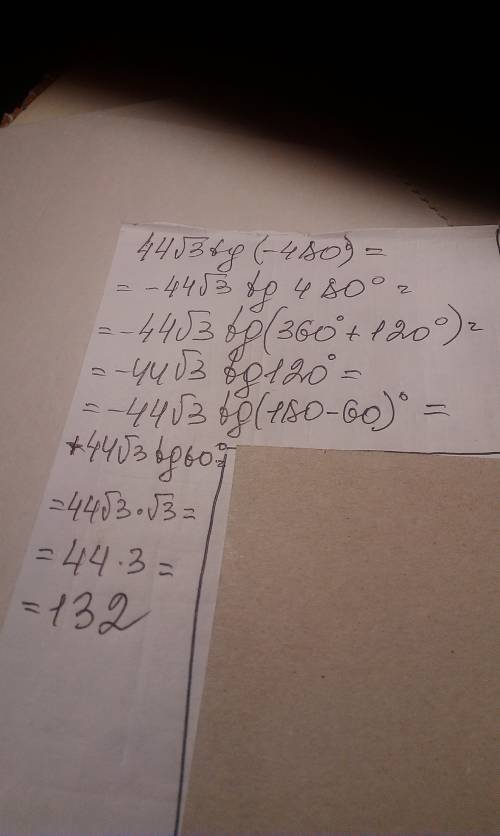 44√3 tg (-480°) =
= -44√3 tg 480° =
= -44√3 tg (360° + 120°) =
= -44√3 tg 120° =
= -44√3 tg (180 - 60)° =
+44√3 tg 60° =
= 44√3 · √3 =
= 44 · 3 =
= 132